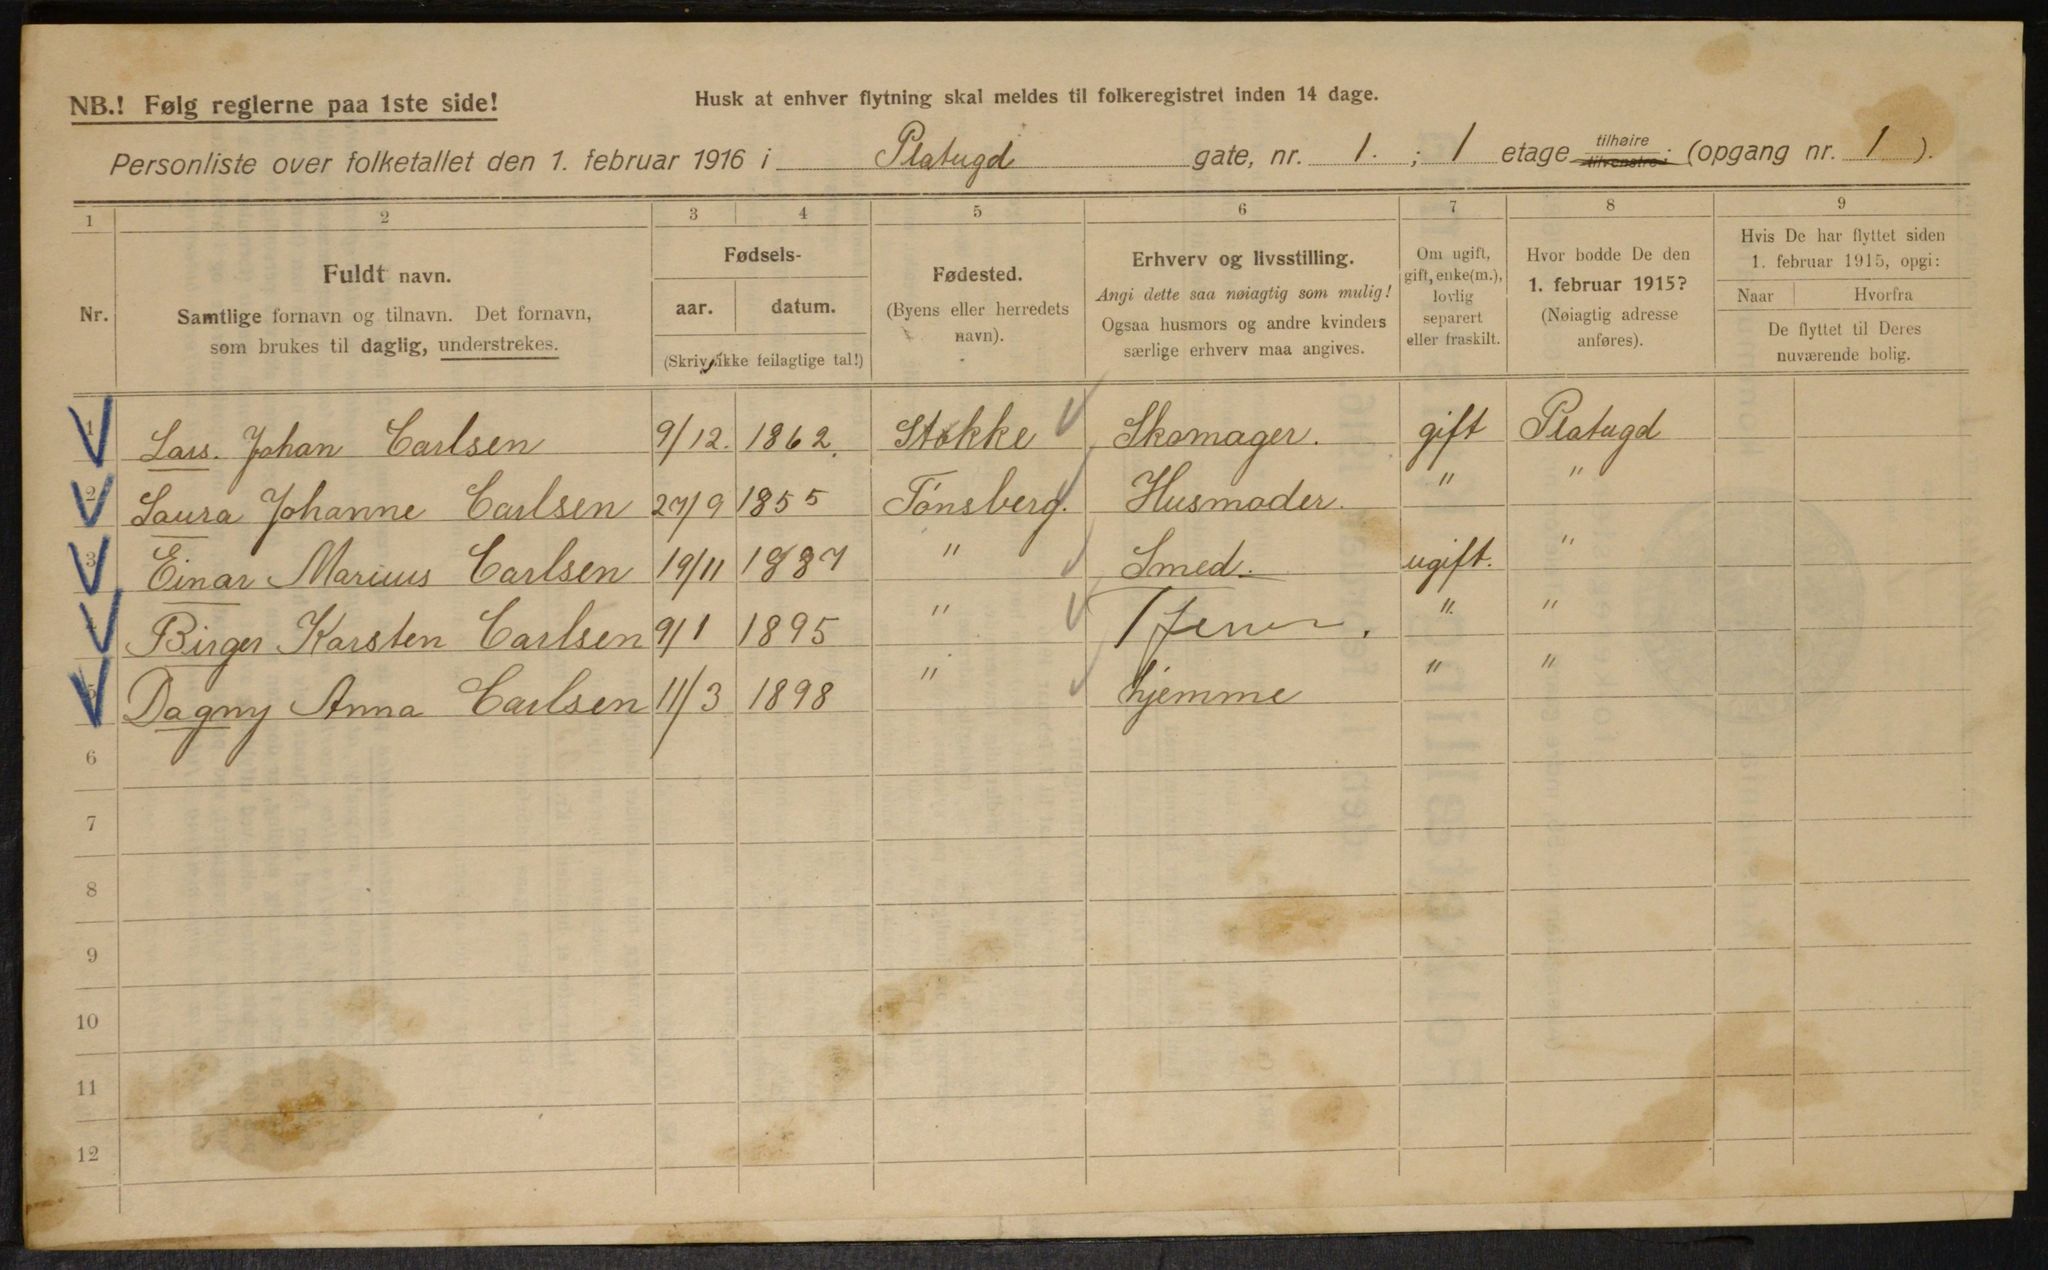 NB.! Følg reglerne paa 1ste side!
Husk at enhver flytning skal meldes til folkeregistret inden 14 dage.
Personliste over folketallet den 1. februar 1916 i Platugd gate, nr. 1. ; 1 etage tilhøire tilvenstre (opgang nr. 1 ).
1 2 3 4 5 6 7 8 9
Nr.
Fuldt navn.
Samtlige fornavn og tilnavn. Det fornavn,
som brukes til daglig, understrekes.
Fødsels-
aar. datum.
(Skriv ikke feilagtige tal!)
Fødested.
(Byens eller herredets
navn).
Erhverv og livsstilling.
Angi dette saa nøiagtig som mulig!
Ogsaa husmors og andre kvinders
særlige erhverv maa angives.
Om ugift,
gift, enke(m.),
lovlig
separert
eller fraskilt.
Hvor bodde De den
1. februar 1915?
(Nøiagtig adresse
anføres).
Hvis De har flyttet siden
1. februar 1915, opgi:
Naar Hvorfra
De flyttet til Deres
nuværende bolig.
1 Lars. Johan Carlsen 9/12. 1862. Stokke Skomager. gift Platugd
2 Laura Johanne Carlsen 27/9 1855 Tønsberg. Husmoder. " "
3 Einar Marius Carlsen 19/11 1887 " Smed. ugift. "
4 Birger Karsten Carlsen 9/1 1895 " " "
5 Dagny Anna Carlsen 11/3 1898 " hjemme " "
6
7
8
9
10
11
12